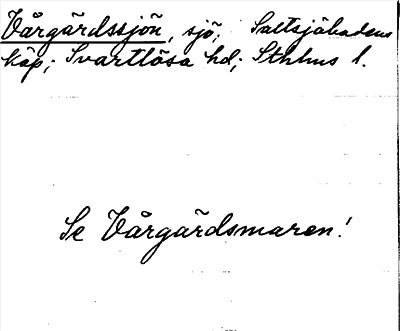 Vårgärdssjön, sjö, Saltsjöbadens
köp; Svartlösa hd; Sthlms l.
Se Vårgärdsmaren!